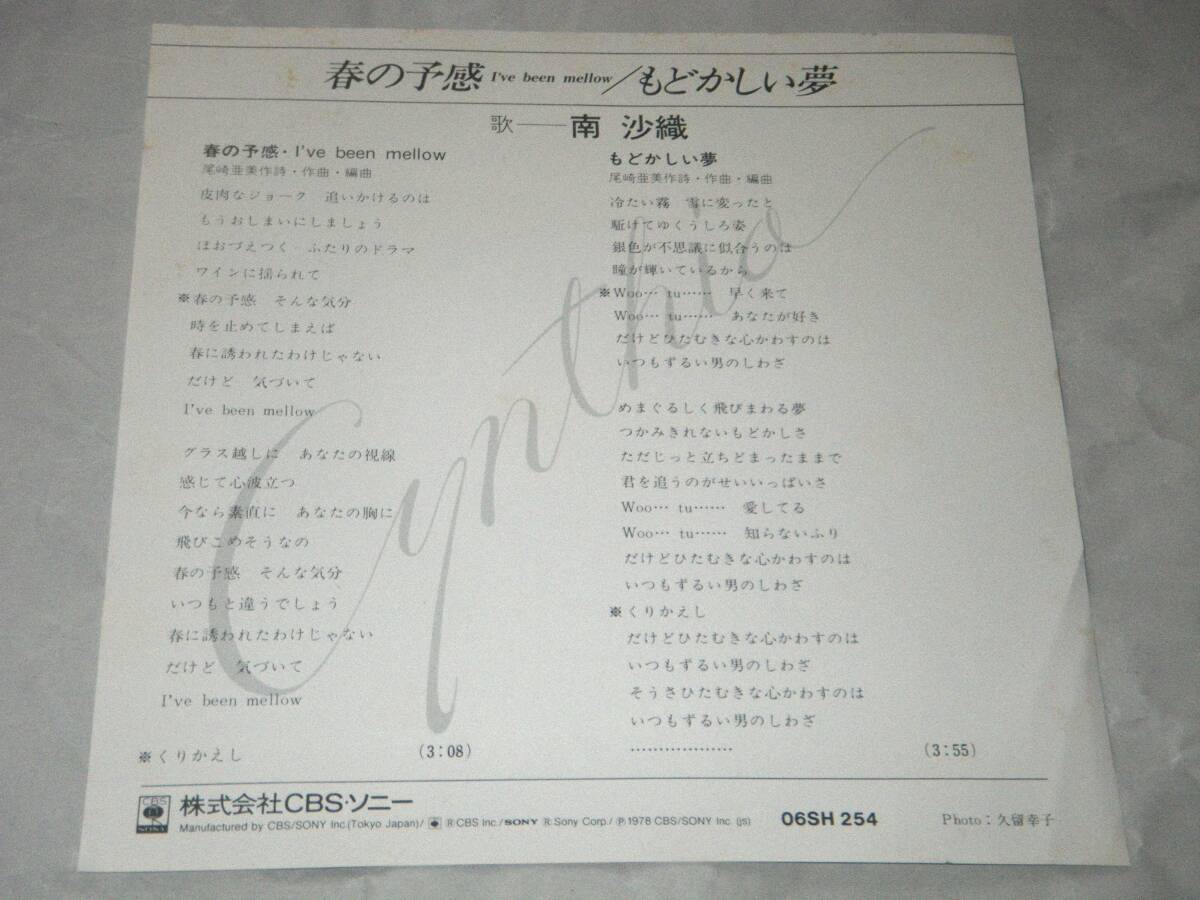 春の予感 I've been mellow/もどかしい夢
歌──南 沙織
春の予感・I've been mellow
尾崎亜美作詩・作曲・編曲
皮肉なジョーク 追いかけるのは
もうおしまいにしましょう
ほおづえつく ふたりのドラマ
ワインに揺られて
※春の予感 そんな気分
時を止めてしまえば
春に誘われたわけじゃない
だけど 気づいて
I've been mellow
グラス越しに あなたの視線
感じて心波立つ
今なら素直に あなたの胸に
飛びこめそうなの
春の予感 そんな気分
いつもと違うでしょう
春に誘われたわけじゃない
だけど 気づいて
I've been mellow
※くりかえし
(3:08)
もどかしい夢
尾崎亜美作詩・作曲・編曲
冷たい霧 雪に変ったと
駈けてゆくうしろ姿
銀色が不思議に似合うのは
瞳が輝いているから
※Woo… tu…… 早く来て
Woo… tu…… あなたが好き
だけどひたむきな心かわすのは
いつもずるい男のしわざ
めまぐるしく飛びまわる夢
つかみきれないもどかしさ
ただじっと立ちどまったままで
君を追うのがせいいっぱいさ
Woo… tu…… 愛してる
Woo… tu…… 知らないふり
だけどひたむきな心かわすのは
いつもずるい男のしわざ
※くりかえし
だけどひたむきな心かわすのは
いつもずるい男のしわざ
そうさひたむきな心かわすのは
いつもずるい男のしわざ
………………
(3:55)
Cynthia
CBS SONY
株式会社CBS・ソニー
Manufactured by CBS/SONY Inc.(Tokyo Japan)/ ®CBS Inc./SONY ®Sony Corp./℗1978 CBS/SONY Inc. (js)
06SH 254
Photo：久留幸子